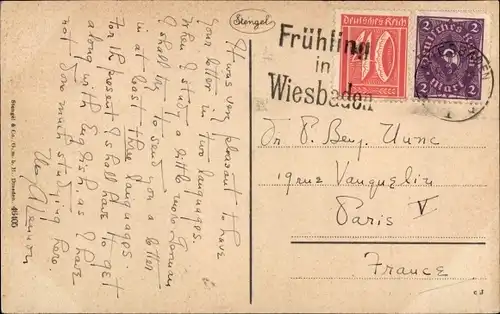 Stengel
It was very pleasant to have
your letter in two languages.
When I study a little more German
I shall try to send you a letter
in at least three languages.
For the present I shall have to get
along with English, as I have
not done much studying here.
Stengel & Co., G. m. b. H., Dresden. 46405
Frühling
in
Wiesbaden
Deutsches Reich
40
2 2
Deutsches
Reich
2 Mark 2
Dr P. Bey. Unne
19 rue Vauquelin
Paris V
France